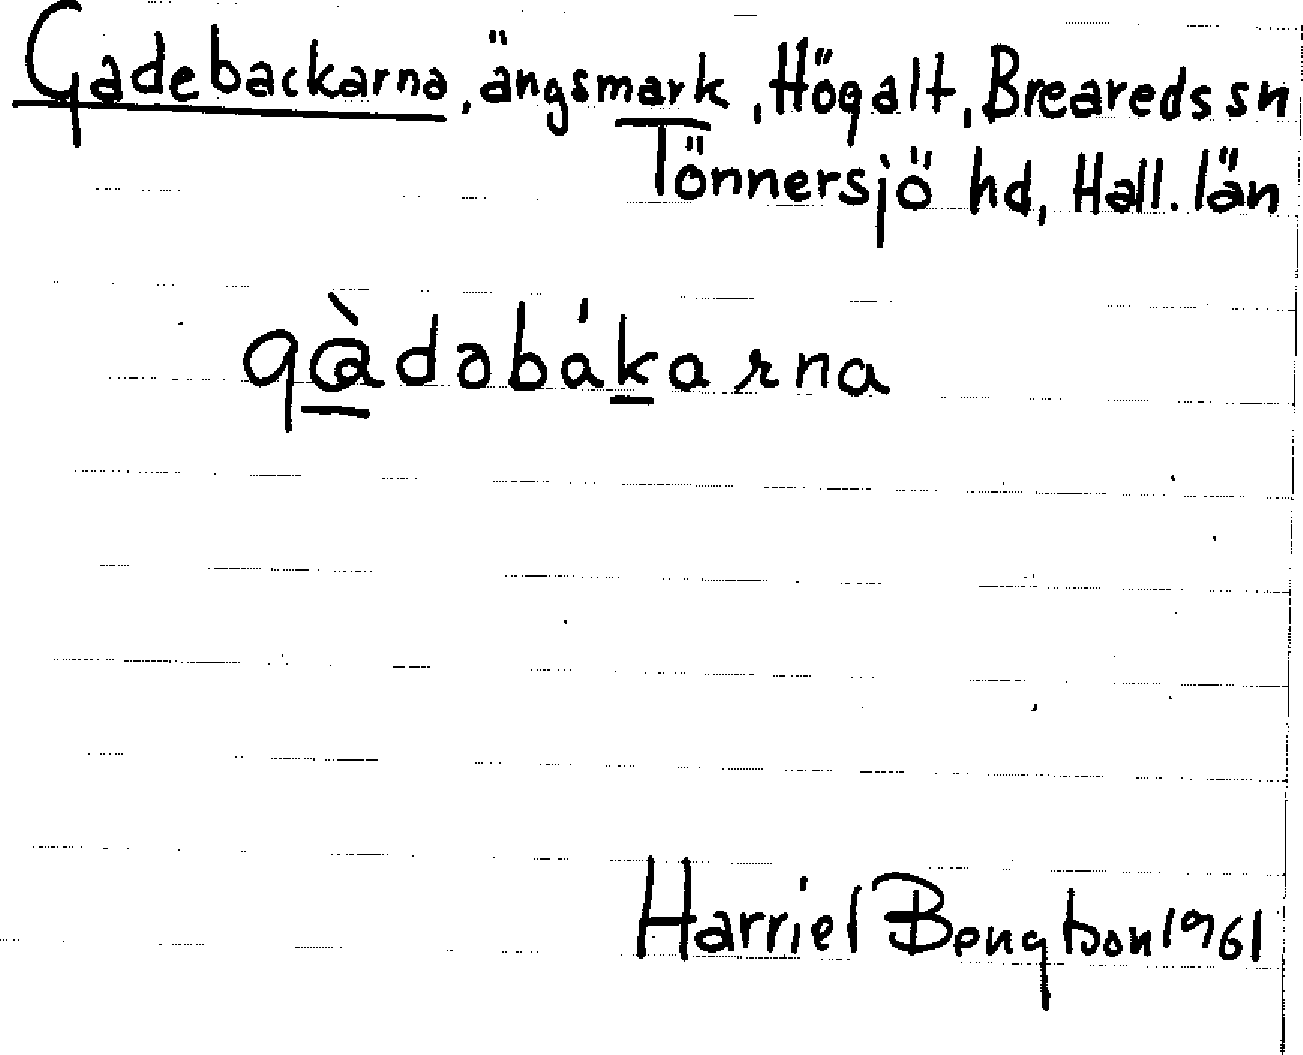 Gadebackarna, ängsmark, Högalt, Breareds sn
Tönnersjö hd, Hall. län
gàdəbákarna
Harriel Bengtson 1961